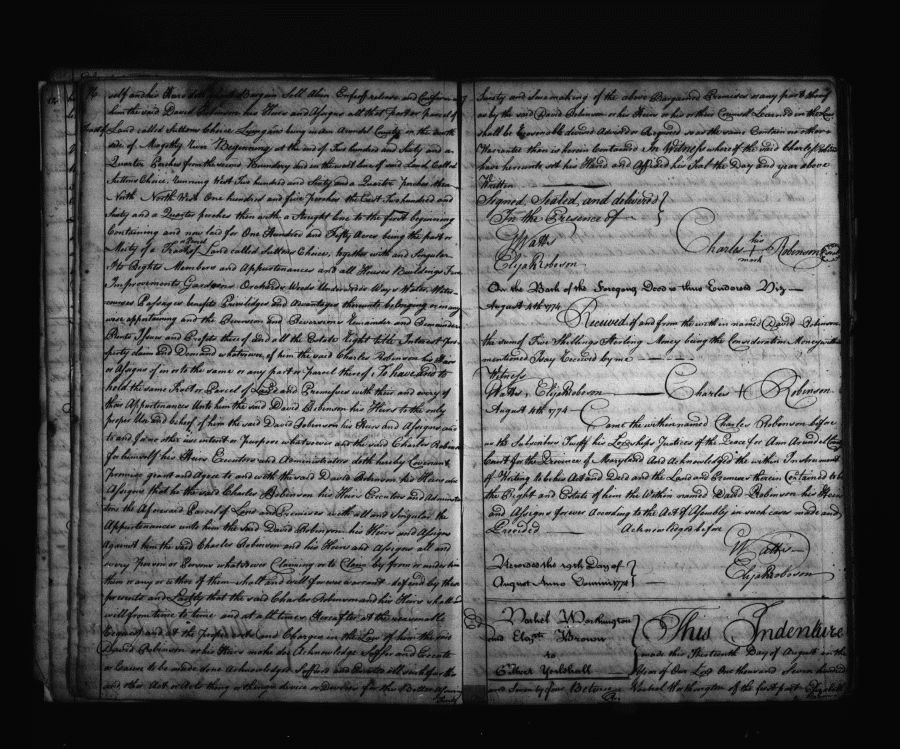 96
self and his Heirs doth grant Bargain Sell Alien Enfeoff release and Confirm unto
him the said David Robinson his Heirs and Assigns all that Part or parcel of
Land called Suttons Choice Lying and being in Ann Arundel County on the North
side of Magothy River Beginning at the end of Two hundred and Sixty and a
Quarter Perches from the second Boundary and in the west line of said Land Called
Suttons Choice, running West Two hundred and Sixty and a Quarter perches then
North North West One hundred and five perches then East Two hundred and
Sixty and a Quarter perches then with a straight line to the first beginning
Containing and now laid for One Hundred and Fifty Acres being the part or
Moiety of a Tract of Land called Suttons Choice, together with and Singular
Its Rights Members and Appurtenances and all Houses Buildings
Improvements Gardens Orchards Woods Underwoods Ways Waters Water
courses Passages benefits Priviledges and Advantages thereunto belonging or in any
wise appertaining and the Reversion and Reversions Remainder and Remainders
Rents Issues and Profits thereof and all the Estate Right title Interest pro
perty claim and Demand whatsoever, of him the said Charles Robinson his Heirs
or Assigns of in or to the same or any part or parcel thereof To have and to
hold the same Tract or Parcel of Land and Premises with their and every of
their Appurtenances Unto him the said David Robinson his Heirs to the only
proper Use and behoof of him the said David Robinson his Heirs and Assigns and
to and for no other use intent or Purpose whatsoever and the said Charles Robinson
for himself his Heirs Executors and Administrators doth hereby Covenant
promise grant and Agree to and with the said David Robinson his Heirs and
Assigns that he the said Charles Robinson his Heirs Executors and Administra
tors the Aforesaid Parcel of Land and Premises with all and Singular the
Appurtenances unto him the said David Robinson his Heirs and Assigns
Against him the said Charles Robinson and his Heirs and Assigns all and
every Person or Persons whatsoever Claiming or to Claim by from or under him
them or any or either of them shall and will forever warrant defend by these
presents and Lastly that the said Charles Robinson and his Heirs shall and
will from time to time and at all times Hereafter at the reasonable
Request and at the Proper Costs and Charges in the Law of him the said
David Robinson or his Heirs make do Acknowledge Suffer and Execute
or Cause to be made done Acknowledged Suffered and Executed all such further
and other Act or Acts thing or things device or Devices for the Better Assuring
Surety
Surety and Sure making of the above Bargained Premises or any part thereof
as by the said David Robinson or his Heirs or his or their Council Learned in the Law
shall be Reasonable devised Advised or Required so as the same Contain no other
Warranties than is herein Contained In Witness whereof the said Charles Robinson
have hereunto set his Hand and Affixed his Seal the Day and year above
Written
Signed, Sealed, and delivered
In the Presence of
Watts
Elijah Robosson
Charles his + mark Robinson
On the Back of the Foregoing Deed is thus Endorsed Viz
August 4th 1774
Received of and from the within named David Robinson
the sum of Five Shillings Sterling Money being the Consideration Money within
mentioned I say Received by me
Witness
Watts, Elijah Robosson Charles + Robinson
August 4th 1774
Came the within named Charles Robinson before
us the Subscribers Two of his Lordships Justices of the Peace for Ann Arundel County
Court for the Province of Maryland And Acknowledged the within Instrument
of Writing to be his Act and Deed and the Land and Premises therein Contained to be
the Right and Estate of him the Within named David Robinson his Heirs
and Assigns forever According to the Act of Assembly in such case made and
Provided Acknowledged before
Watts
Elijah Robosson
Received the 19th Day of
August Anno Domini 1774
Rachel Worthington
and Elizth Brown
to
Yieldhall
This Indenture
made this Thirteenth Day of August in the
Year of Our Lord One thousand Seven hundred
and Seventy four Between Rachel Worthington of the first part Elizabeth